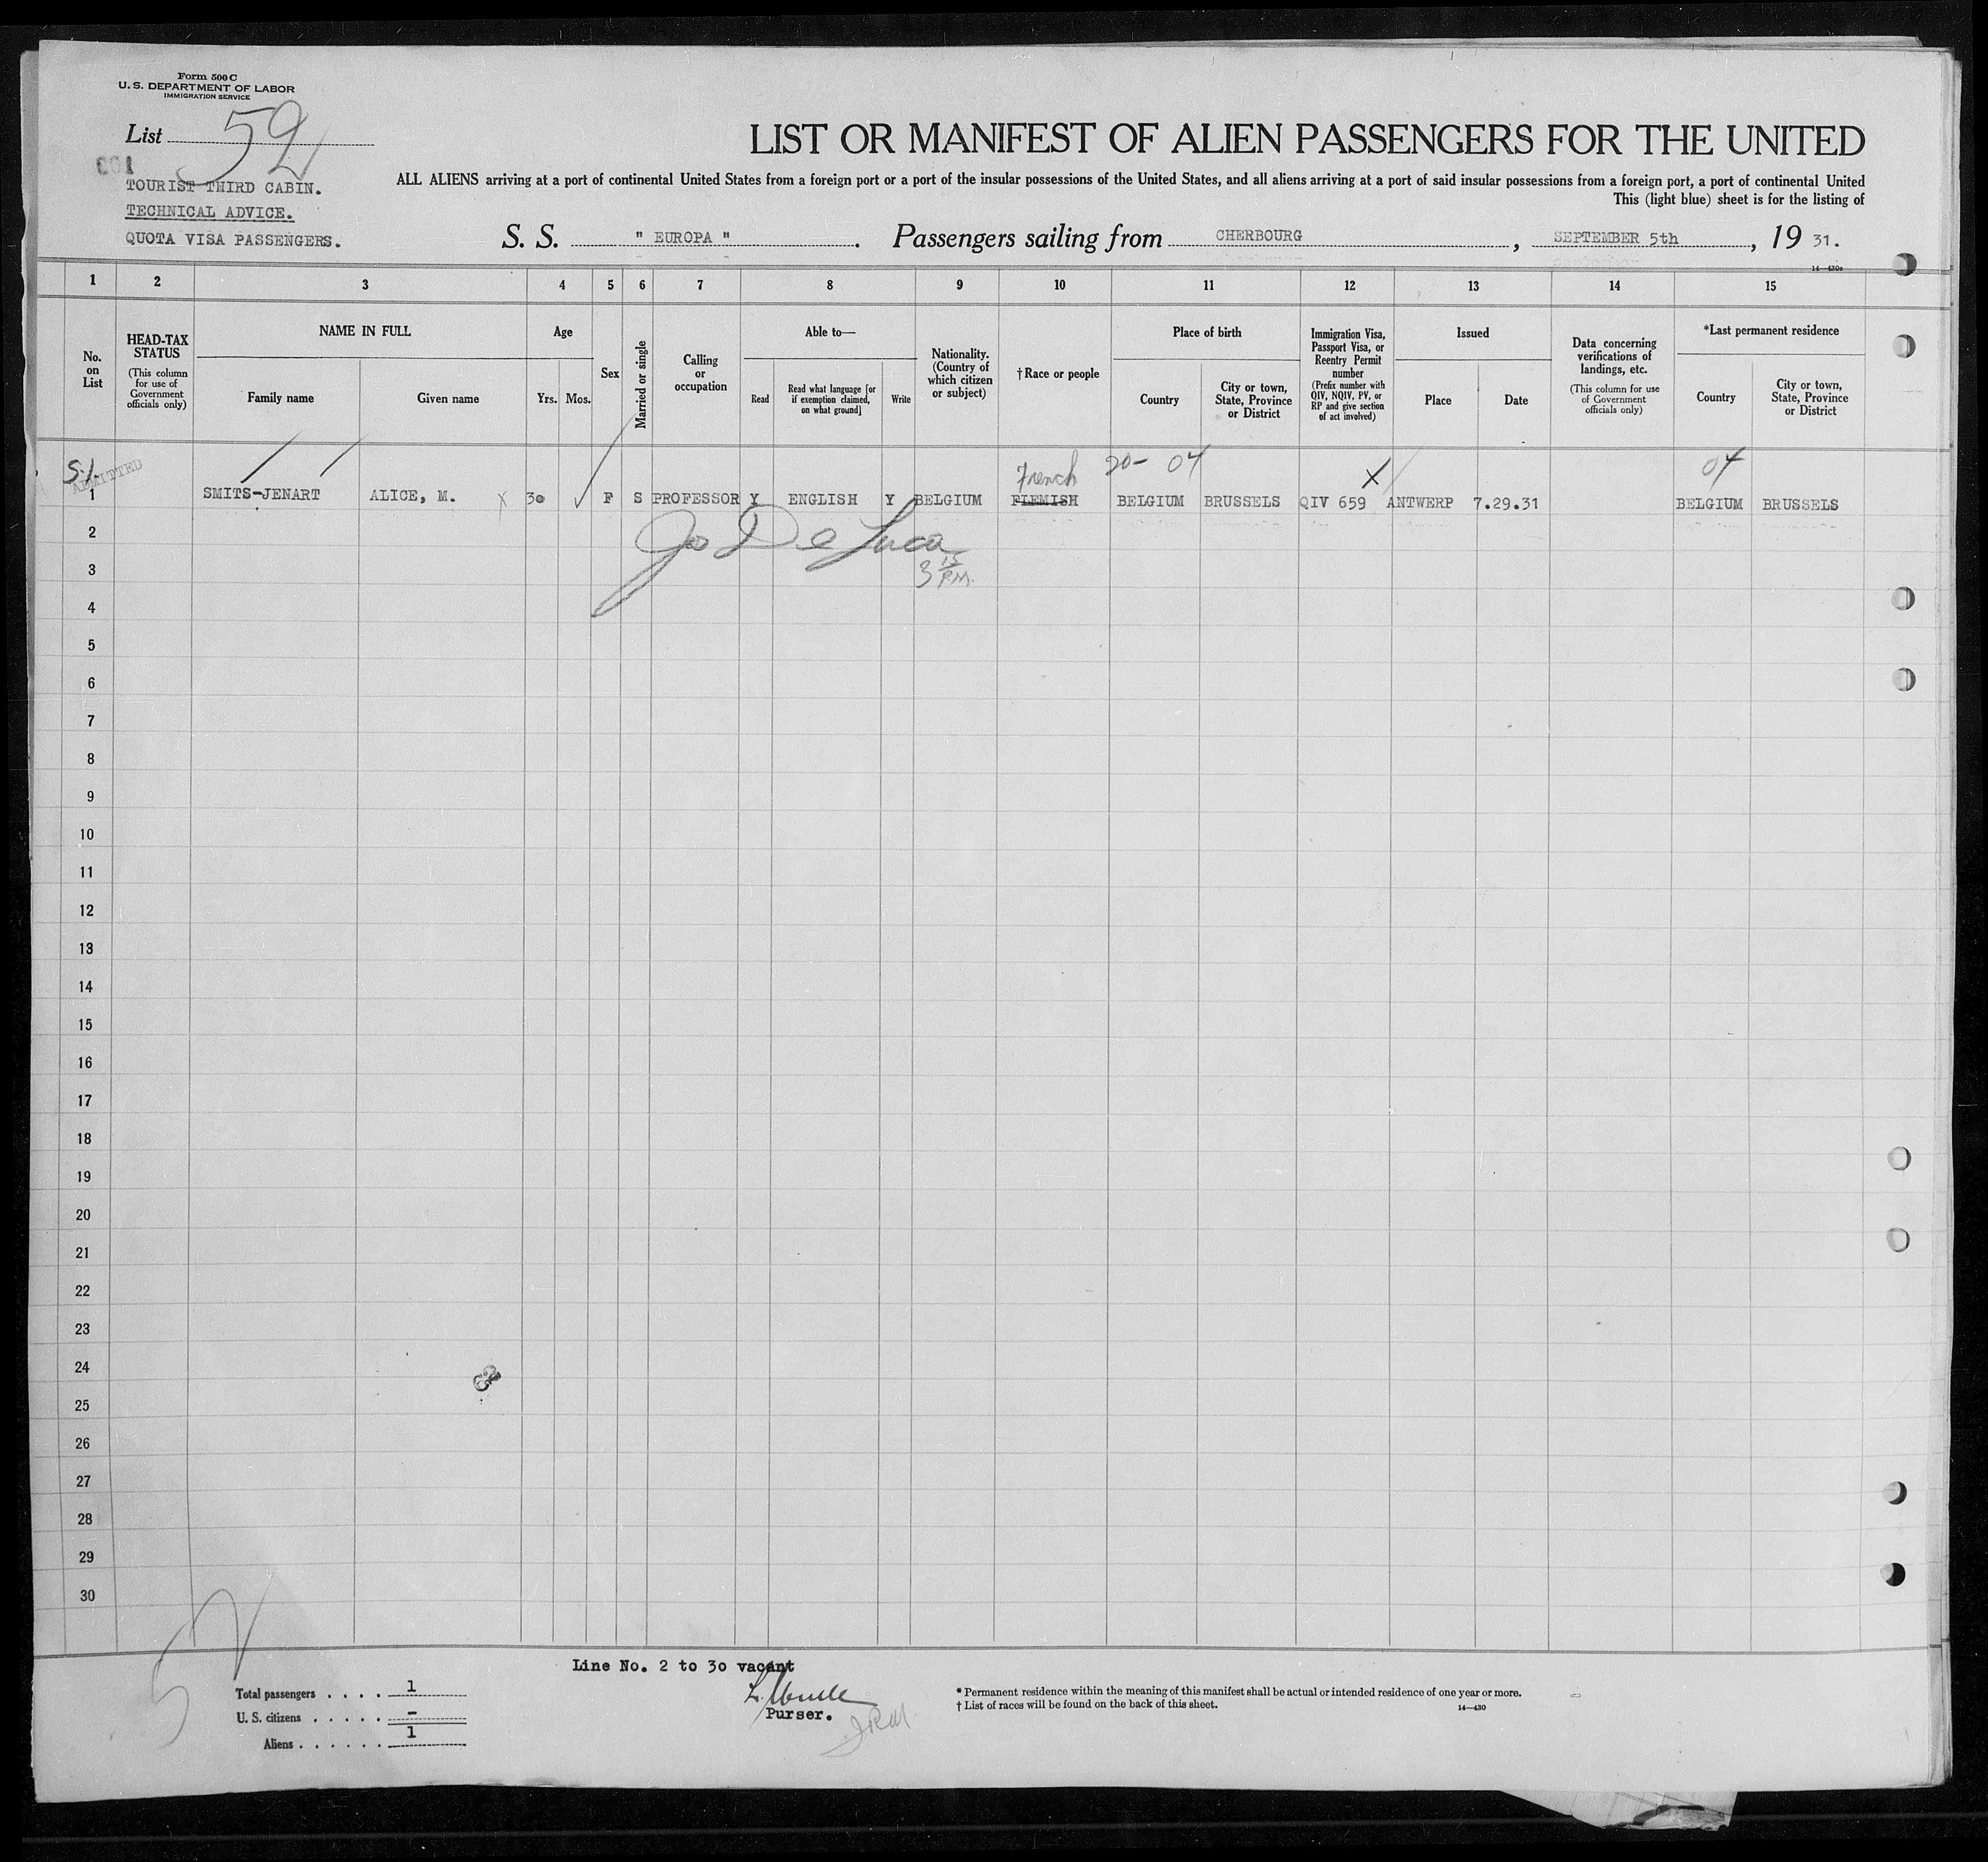 Form 500 C
U. S. DEPARTMENT OF LABOR
IMMIGRATION SERVICE
List 52
001
TOURIST THIRD CABIN.
TECHNICAL ADVICE.
QUOTA VISA PASSENGERS.
LIST OR MANIFEST OF ALIEN PASSENGERS FOR THE UNITED
ALL ALIENS arriving at a port of continental United States from a foreign port or a port of the insular possessions of the United States, and all aliens arriving at a port of said insular possessions from a foreign port, a port of continental United
This (light blue) sheet is for the listing of
S. S. " EUROPA ". Passengers sailing from CHERBOURG, SEPTEMBER 5th, 19 31.
1 2 3 4 5 6 7 8 9 10 11 12 13 14 15
No. on List
HEAD-TAX STATUS (This column for use of Government officials only)
NAME IN FULL
Family name Given name
Age
Yrs. Mos.
Sex
Married or single
Calling or occupation
Able to—
Read
Read what language [or if exemption claimed, on what ground]
Write
Nationality. (Country of which citizen or subject)
†Race or people
Place of birth
Country City or town, State, Province or District
Immigration Visa, Passport Visa, or Reentry Permit number (Prefix number with QIV, NQIV, PV, or RP and give section of act involved)
Issued
Place Date
Data concerning verifications of landings, etc. (This column for use of Government officials only)
*Last permanent residence
Country City or town, State, Province or District
ADMITTED
French 20- 04 X 04
1 SMITS-JENART ALICE, M. X 30 F S PROFESSOR Y ENGLISH Y BELGIUM FLEMISH BELGIUM BRUSSELS QIV 659 ANTWERP 7.29.31 BELGIUM BRUSSELS
Jo De Luca
3 15 P.M.
2
3
4
5
6
7
8
9
10
11
12
13
14
15
16
17
18
19
20
21
22
23
24
25
26
27
28
29
30
Line No. 2 to 30 vacant
Purser.
Total passengers . . . . 1
U. S. citizens . . . . . –
Aliens . . . . . . 1
* Permanent residence within the meaning of this manifest shall be actual or intended residence of one year or more.
† List of races will be found on the back of this sheet.
14—430